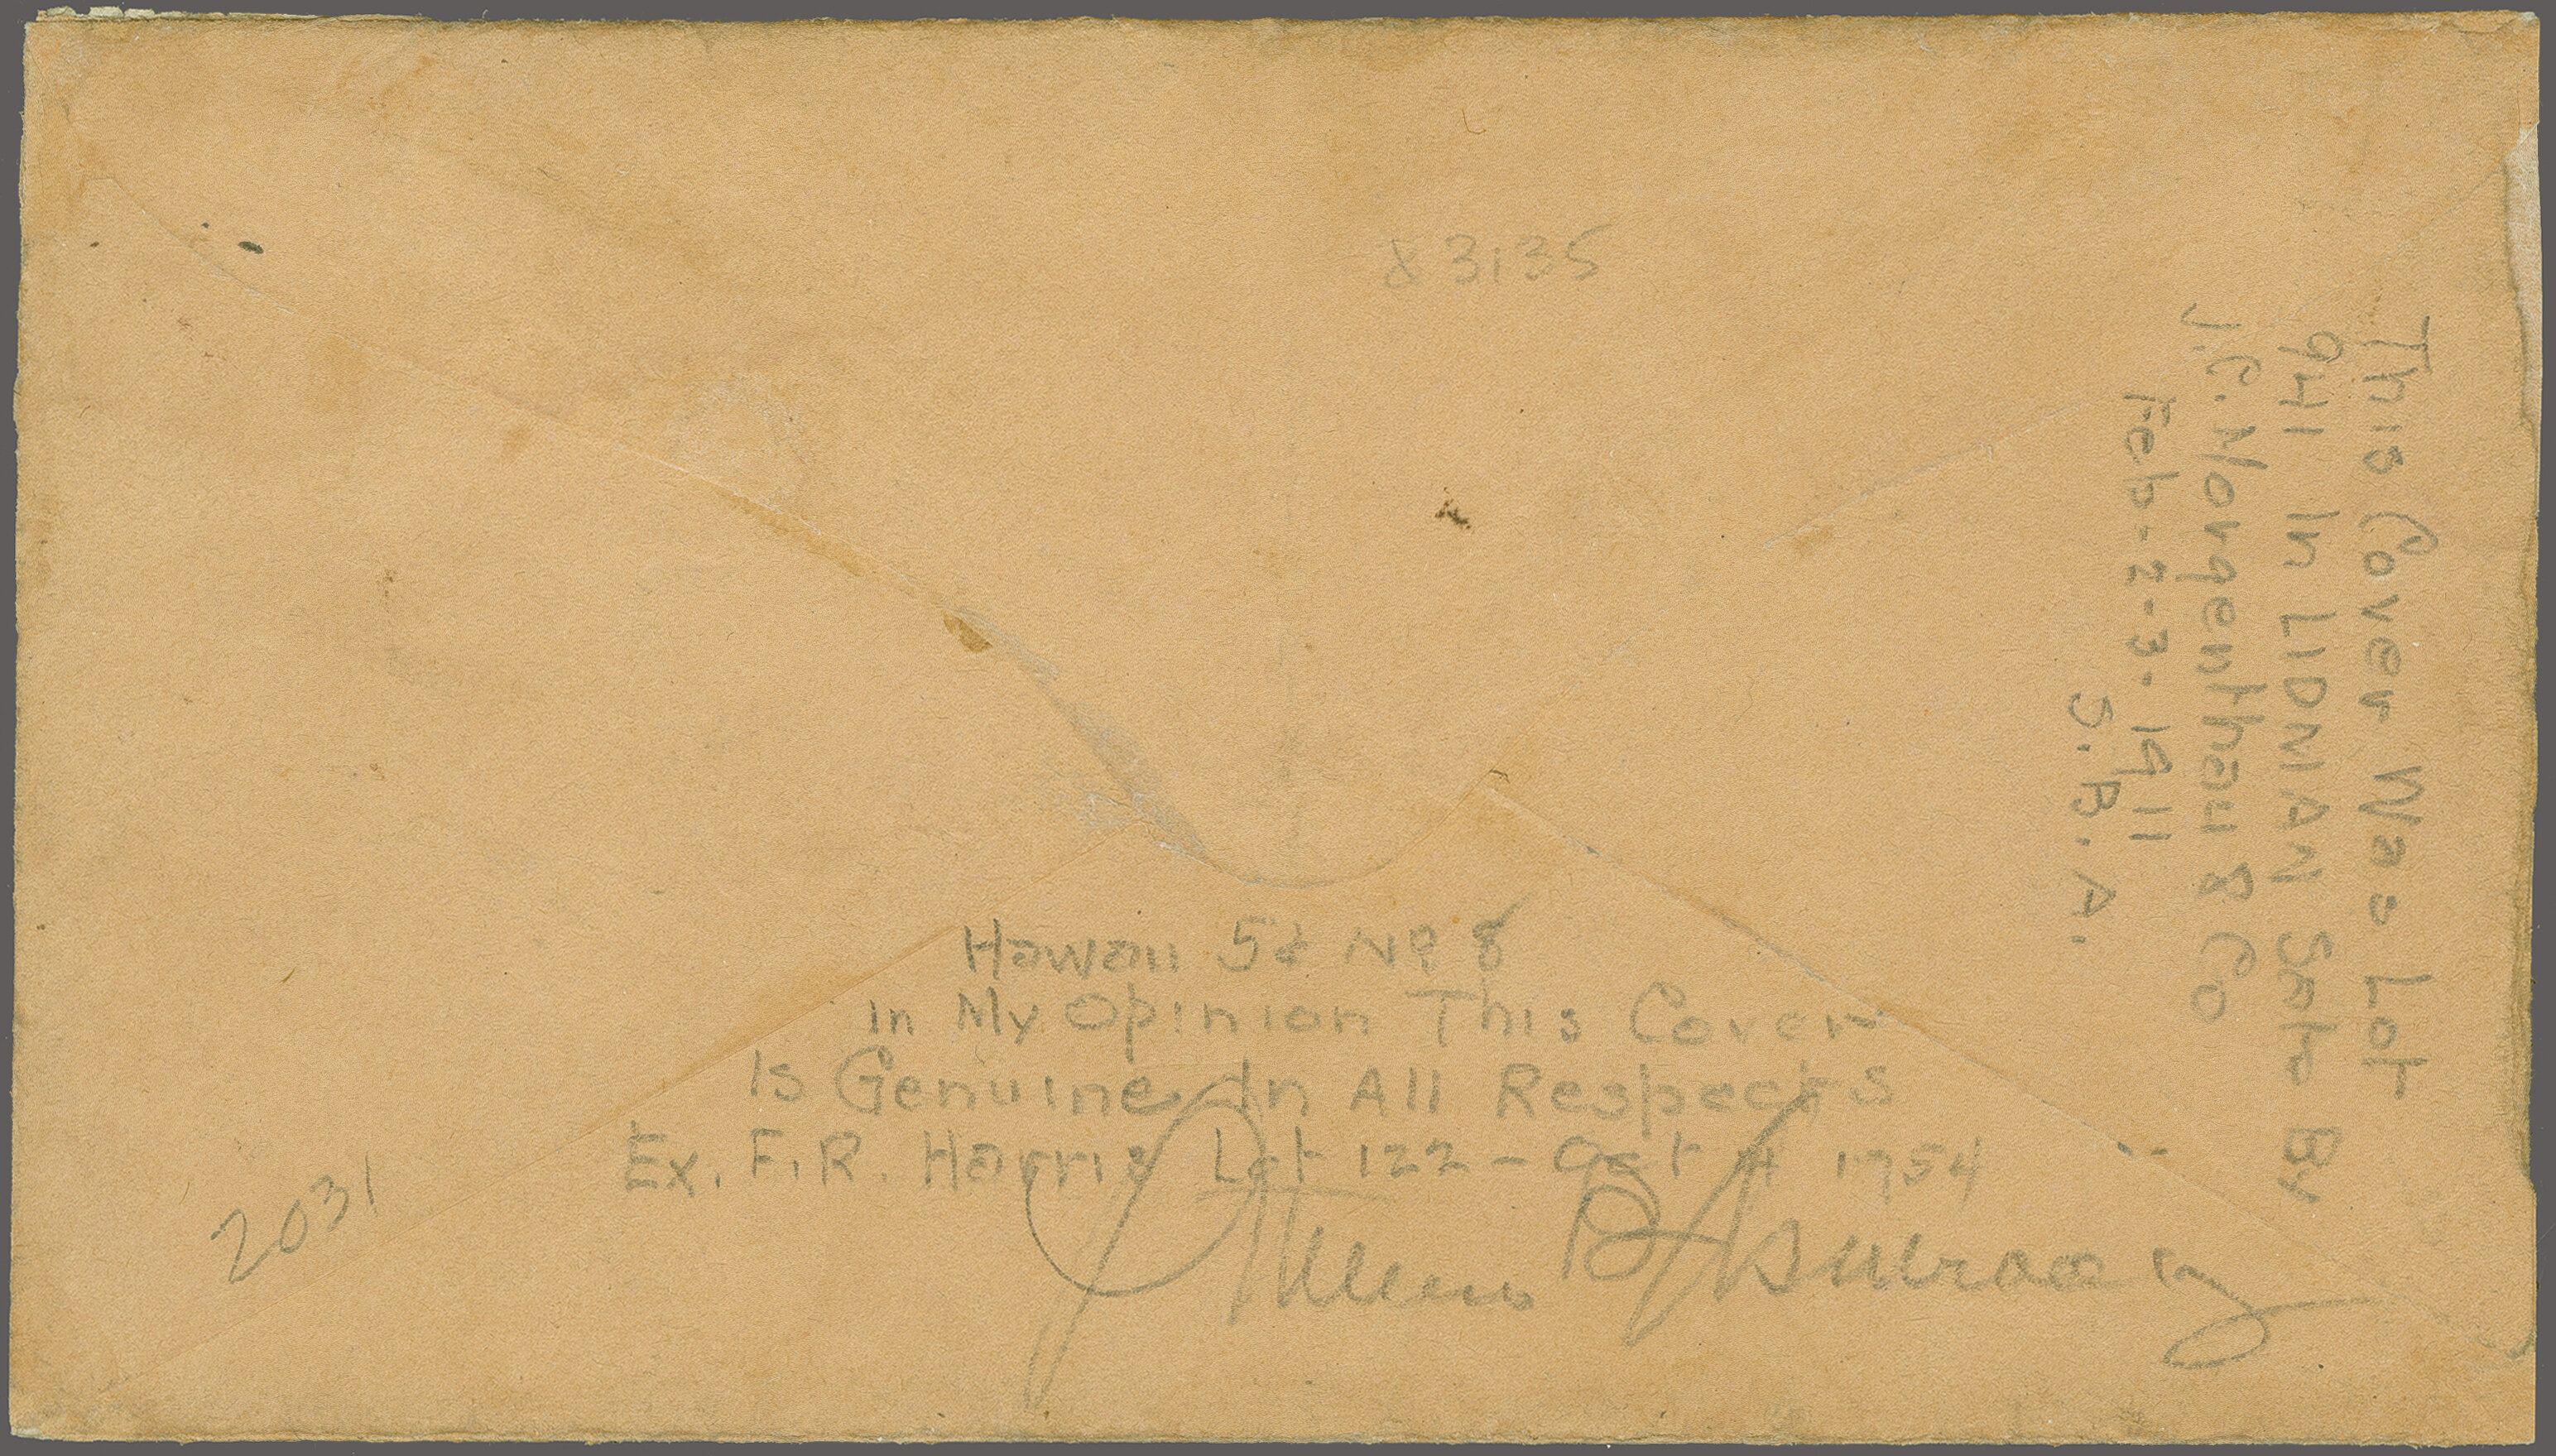 83135
This Cover Was Lot
941 In LIDMAN Sale By
J.C. Morgenthau & Co
Feb-2-3-1911
S.B.A.
Hawaii 5¢ No 8
In My Opinion This Cover
Is Genuine In All Respects
Ex. F.R. Harris Lot 122 - Oct 4 1954
Stanley B. Ashbrook
2031